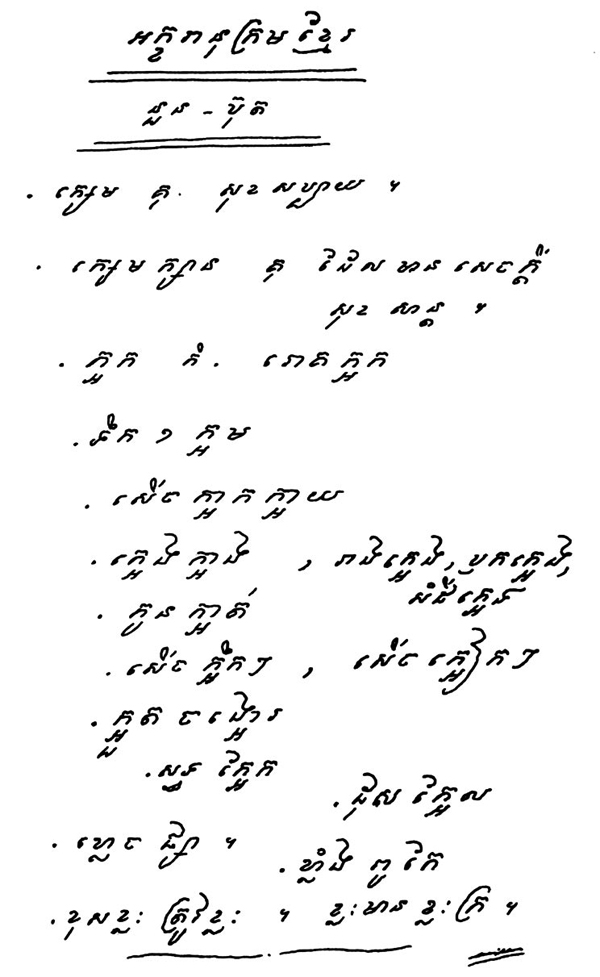 អក្ខរានុក្រមខ្មែរ
នួន - ប៊ុត
. ក្សេម គុ. សុខសប្បាយ ។
. ក្សេមក្សាន្ត គុ ដែលមានសេចក្ដី
សុខ សាន្ត ។
. ក្អក កិ. រោគក្អក
. ទឹក ១ ក្អម
. សើច ក្អាកក្អាយ
. ក្អេងក្អាង , រាងក្អេង, ប្រកក្អេង,
. កូនក្អាត់
. សើច ក្អឹកៗ , សើច ក្អៀកៗ
. ក្អួត ចង្អោរ
. ស្មូទ ក្អែក
. ឌិស ក្អែល
. ខ្លោច ផ្សា ។
. ខ្លាំង ពូកែ
. ខុសខ្លះ ត្រូវខ្លះ ។ ខ្លះមាន ខ្លះក្រ ។